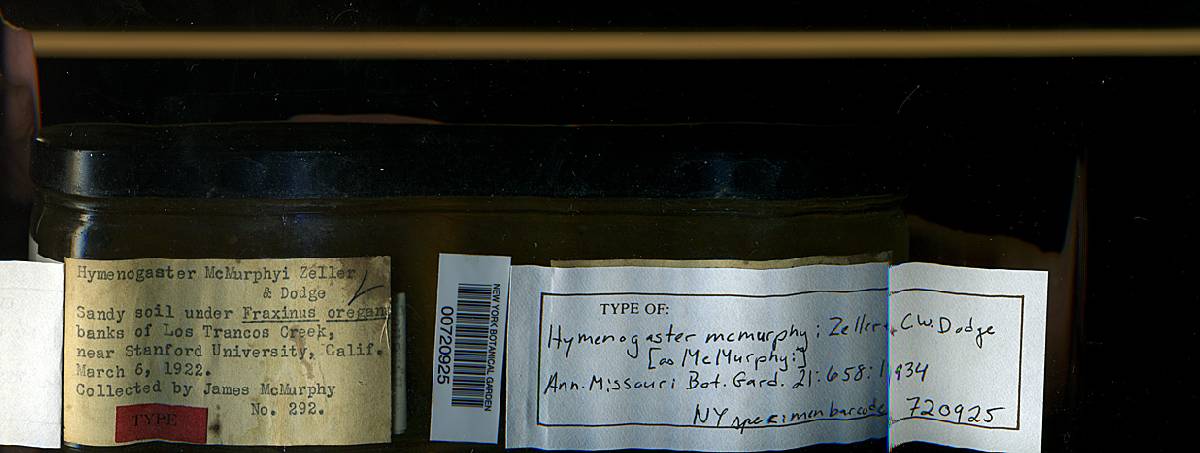 Hymenogaster McMurphyi Zeller
& Dodge
Sandy soil under Fraxinus oregan
banks of Los Trancos Creek,
near Stanford University, Calif.
March 6, 1922.
Collected by James McMurphy
No. 292.
TYPE
NEW YORK BOTANICAL GARDEN
00720925
TYPE OF:
Hymenogaster mcmurphyi Zeller & C.W. Dodge
[as McMurphyi]
Ann. Missouri Bot. Gard. 21:658:1934
NY specimen barcode 720925